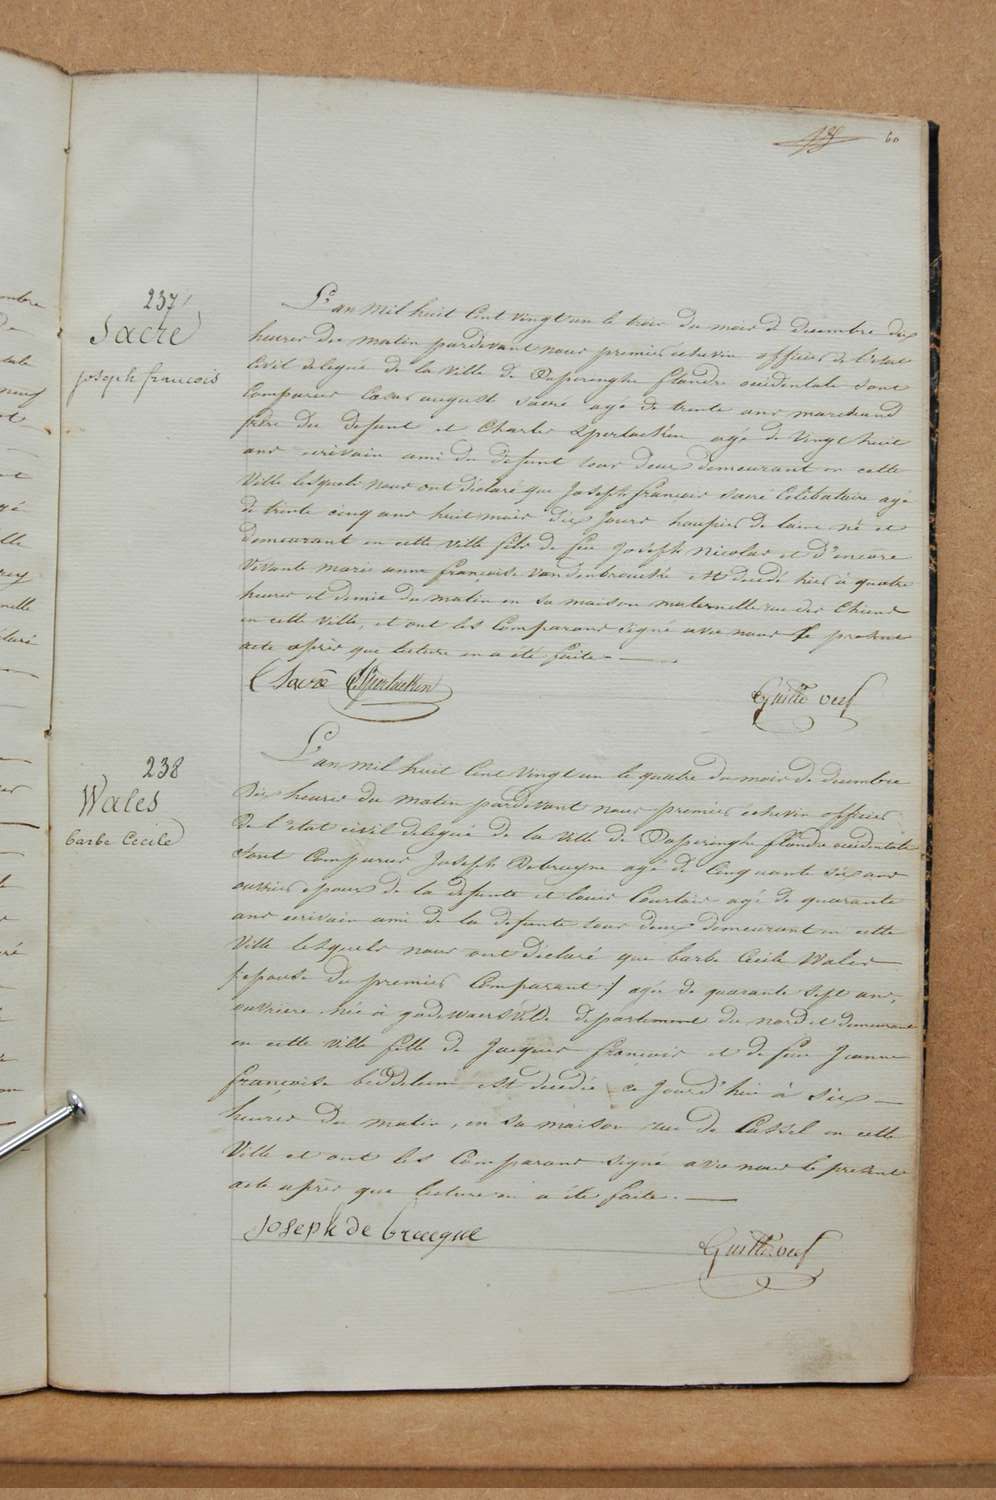 60
237
Sacré
joseph francois
L'an mil huit Cent vingt un le trois du mois de decembre dix
heures du matin pardevant nous premier echevin officier de l'etat
Civil delegué de la Ville de Poperinghe flandre occidentale sont
Comparus Cesar auguste sacré agé de trente ans marchand
frère du defunt et Charles Sperlaekén agé de Vingt huit
ans ecrivain ami du defunt tous deux demeurant en cette
Ville lesquels nous ont déclaré que Joseph francois sacré Célibataire agé
de trente cinq ans huit mois dix jours houpier de laine né et
demeurant en cette ville fils de feu Joseph Nicolas et d'encore
Vivante marie anne françoise vandenbrouckè est decedé hier à quatre
heures et demie du matin en sa maison maternelle rue des Chiens
en cette ville, et ont les Comparans signé avec nous le present
acte après que lecture en a été faite.
C Sacré C Sperlaekén
238
Wales
barbe Cecile
L'an mil huit Cent Vingt un le quatre du mois de decembre
Dix heures du matin pardevant nous premier echevin officier
De l'etat civil delegué de la Ville de Poperinghe flandre occidentale
sont Comparus Joseph Debruyne agé de Cinquante six ans
ouvrier epoux de la defunte et louis agé de quarante
ans ecrivain ami de la defunte tous deux demeurant en cette
Ville lesquels nous ont déclaré que barbe Cecile Wales
/epouse du premier Comparant:/ agée de quarante sept ans,
ouvriere née à godewaersvelde departement du nord et demeurant
en cette ville fille de Jacques françois et de feu Jeanne
françoise beddeleem est decedée ce jourd'hui à six
heures du matin, en sa maison rue de Cassel en cette
Ville et ont les Comparans signé avec nous le present
acte après que lecture en a été faite.
joseph de bruegne